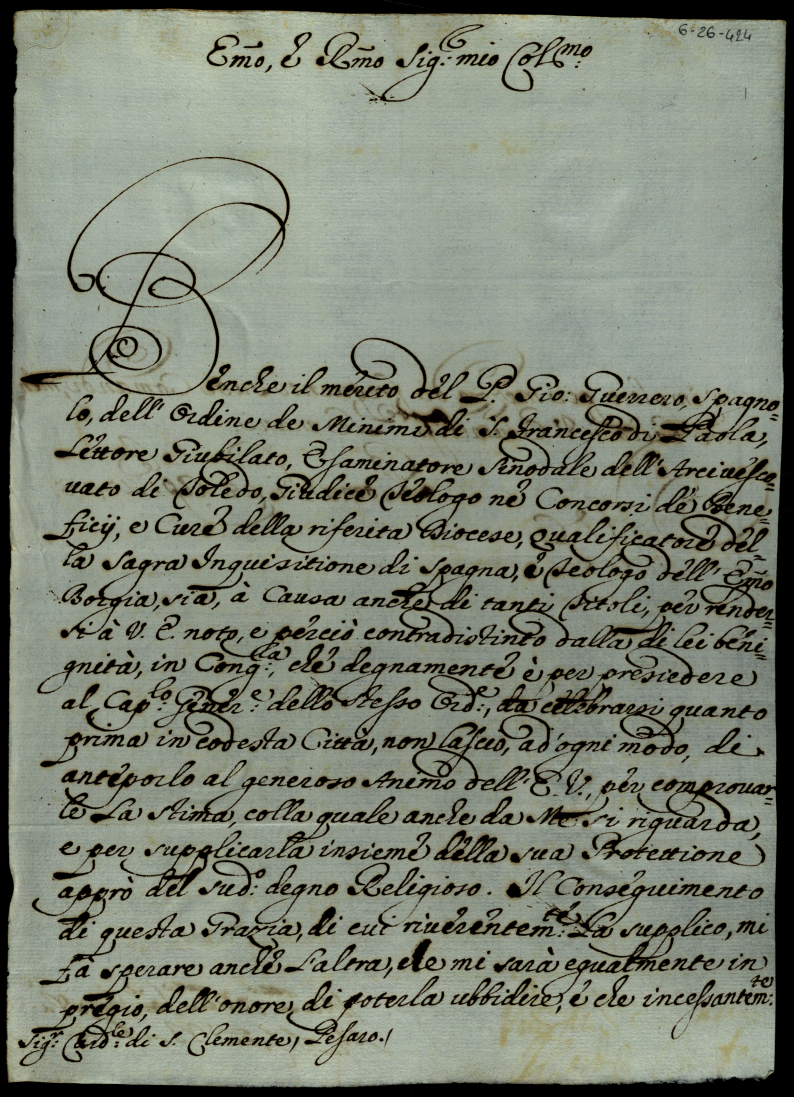 6-26-424
Em̃o, è Rm̃o Sig.r mio Col.mo
Benche il merito del P. Gio: Guerrero, Spagno=
lo, dell'Ordine de Minimi di S. Francesco di Paola,
Lettore Giubilato, Esaminatore Sinodale dell'Arcivesco=
vato di Toledo, Giudice Teologo ne Concorsi de Bene=
ficij, e Cure della riferita Diocese, qualificatore del=
la Sagra Inquisitione di Spagna, è Teologo dell'Em̃o
Borgia, sia, à Causa anche di tanti titoli, per render=
si à V. E. noto, e perciò contradistinto dalla di lei beni=
gnità, in Cong.la, che degnamente è per presiedere
al Cap.lo Gener.e dello stesso Ord.e, da celebrarsi quanto
prima in codesta Città, non lascio, ad'ogni modo, di
anteporlo al generoso Animo dell'E. V., per comprovar=
le La stima, colla quale anche da Me si riguarda,
e per supplicarla insieme della sua Protettione
apprò del sud.o degno Religioso. Il Conseguimento
di questa Grazia, di cui riverentem.te La supplico, mi
fà sperare anche L'altra, che mi sarà egualmente in
pregio, dell'onore di poterla ubbidire, è che incessantem.te
Sig.r Card.le di S. Clemente, Pesaro./